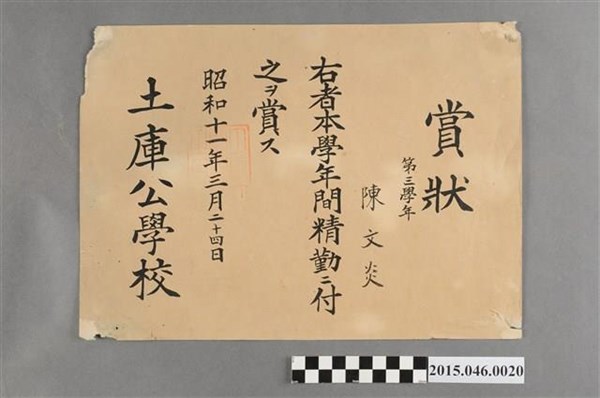 賞狀
第三學年
陳文炎
右者本學年間精勤ニ付
之ヲ賞ス
昭和十一年三月二十四日
土庫公學校
2015.046.0020